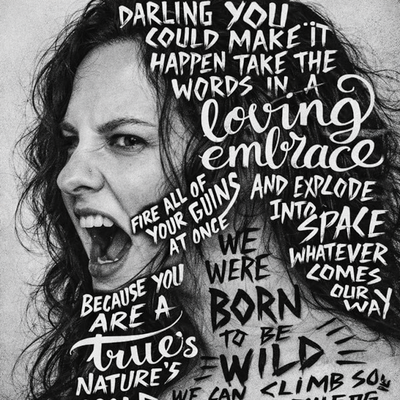 DARLING YOU
COULD MAKE IT
HAPPEN TAKE THE
WORDS IN A
loving
embrace
FIRE ALL OF
YOUR GUINS
AT ONCE
AND EXPLODE
INTO
SPACE
WHATEVER
COMES
OUR
WAY
BECAUSE YOU
ARE A
true's
NATURE'S
WE
WERE
BORN
TO BE
WILD
WE CAN CLIMB SO